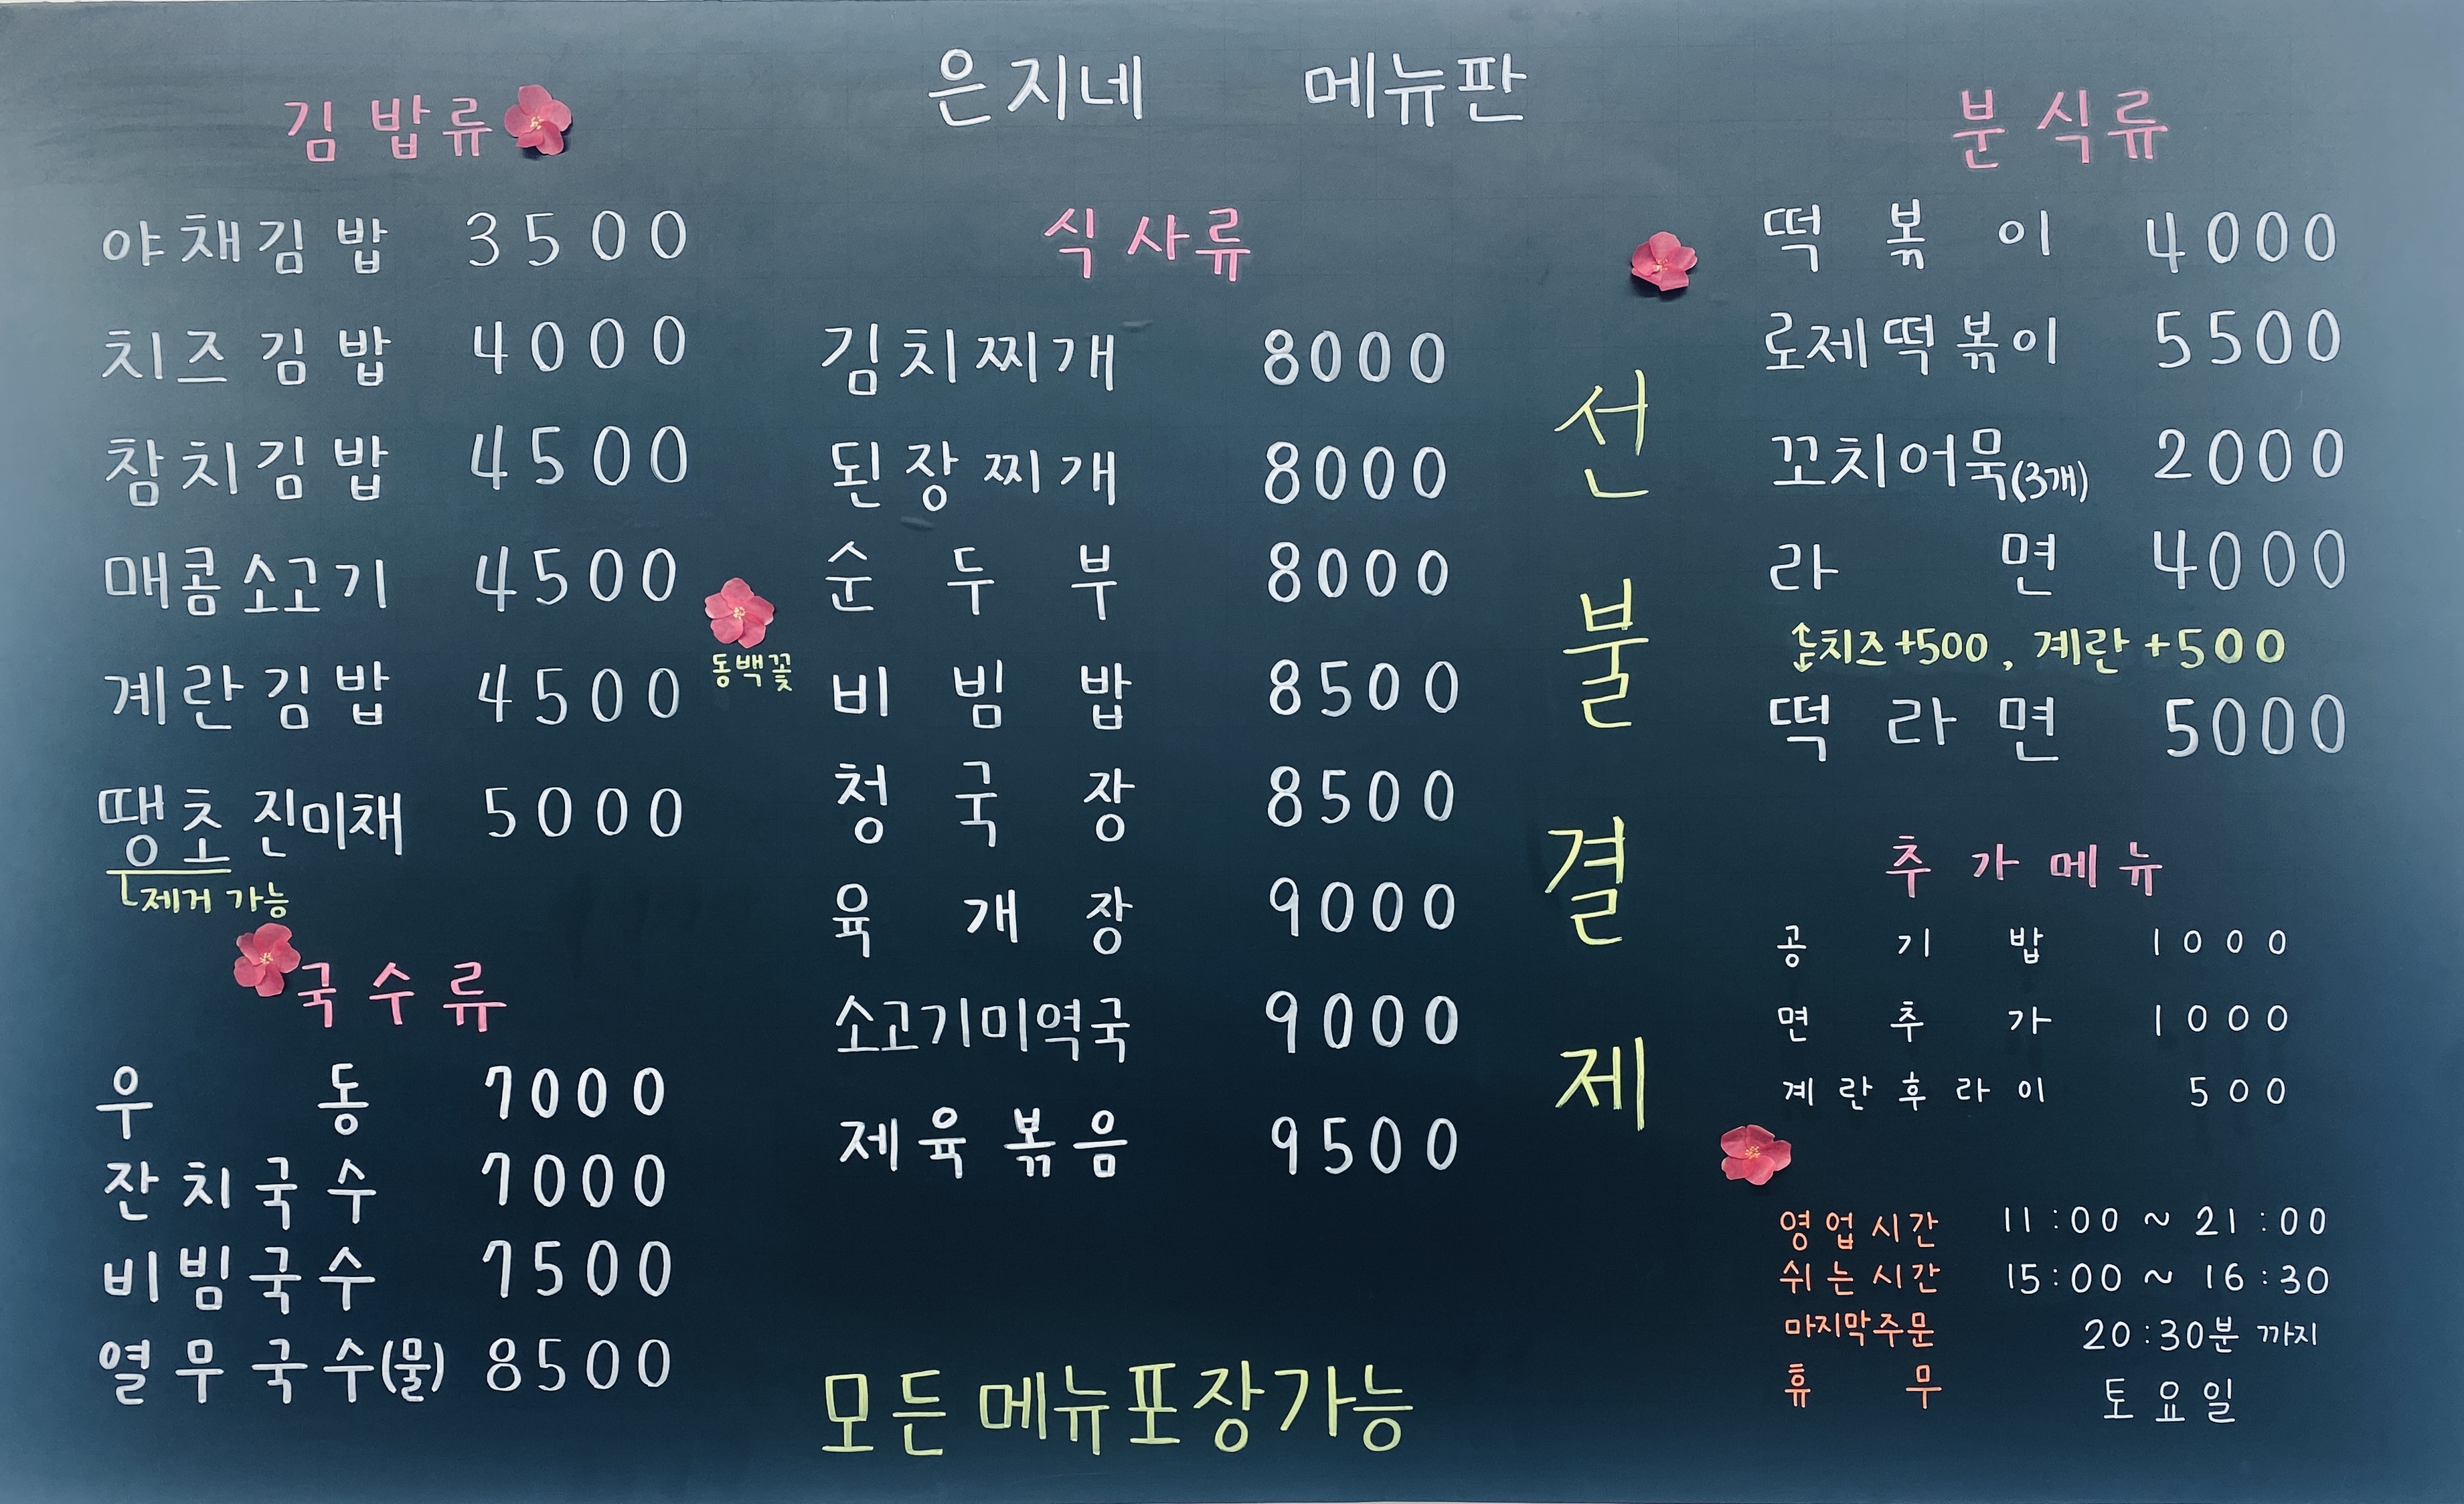 은지네 메뉴판
김밥류
야채김밥 3500
치즈김밥 4000
참치김밥 4500
매콤소고기 4500
계란김밥 4500
땡초 진미채 5000
제거 가능
동백꽃
국수류
우동 7000
잔치국수 7000
비빔국수 7500
열무국수(물) 8500
식사류
김치찌개 8000
된장찌개 8000
순두부 8000
비빔밥 8500
청국장 8500
육개장 9000
소고기미역국 9000
제육볶음 9500
모든 메뉴포장가능
선불결제
분식류
떡볶이 4000
로제떡볶이 5500
꼬치어묵(3개) 2000
라면 4000
치즈+500, 계란+500
떡라면 5000
추가메뉴
공기밥 1000
면추가 1000
계란후라이 500
영업시간 11:00 ~ 21:00
쉬는시간 15:00 ~ 16:30
마지막주문 20:30분 까지
휴무 토요일